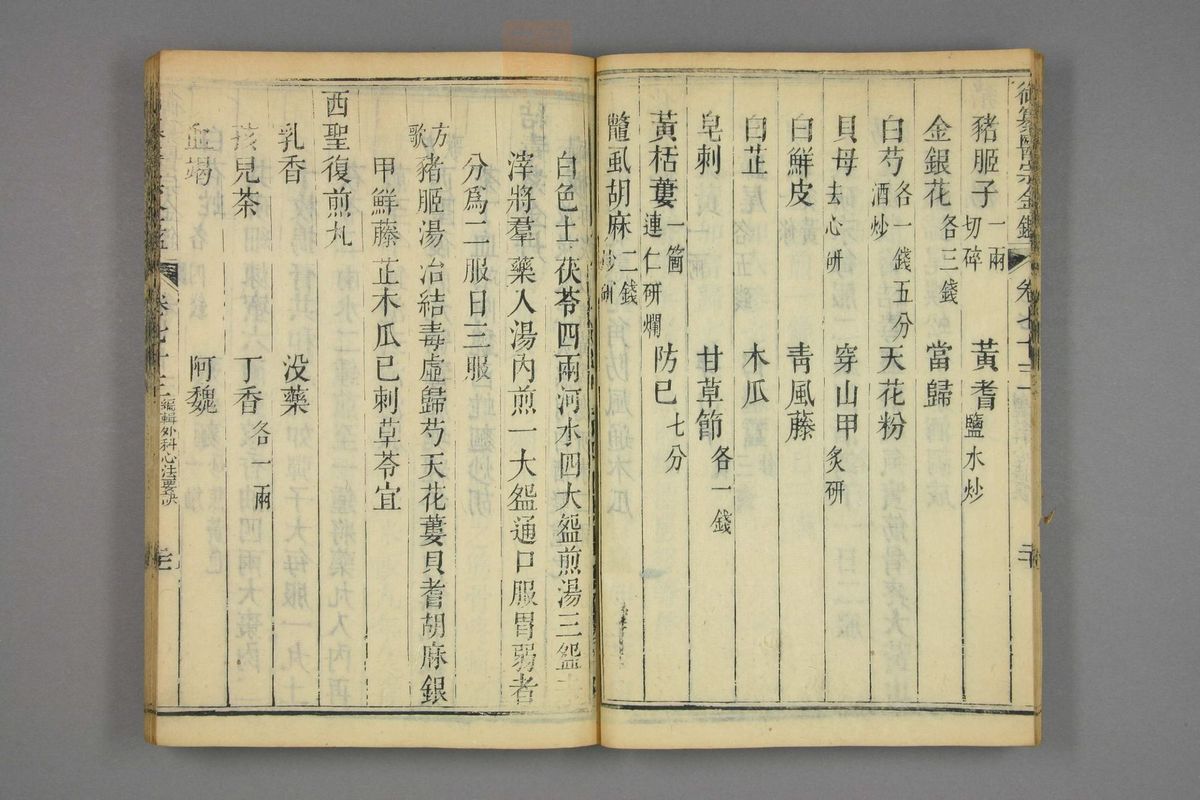 御纂醫宗金鑑 卷七十三
豬胵子一兩切碎 黃耆鹽水炒
金銀花各三錢 當歸
白芍各一錢五分酒炒 天花粉
貝母去心研 穿山甲炙研
白鮮皮 青風藤
白芷 木瓜
皂刺 甘草節各一錢
黃栝蔞一箇連仁研爛 防已七分
鼈虱胡麻二錢炒研
白色土茯苓四兩河水四大盌煎湯三盌去
滓將羣藥入湯內煎一大盌通口服胃弱者
分爲二服日三服
方歌 豬胵湯治結毒虛歸芍天花蔞貝耆胡麻銀
甲鮮藤芷木瓜已刺草苓宜
西聖復煎丸
乳香 没藥
孩兒茶 丁香各一兩
血竭 阿魏
卷七十三 編輯外科心法要訣